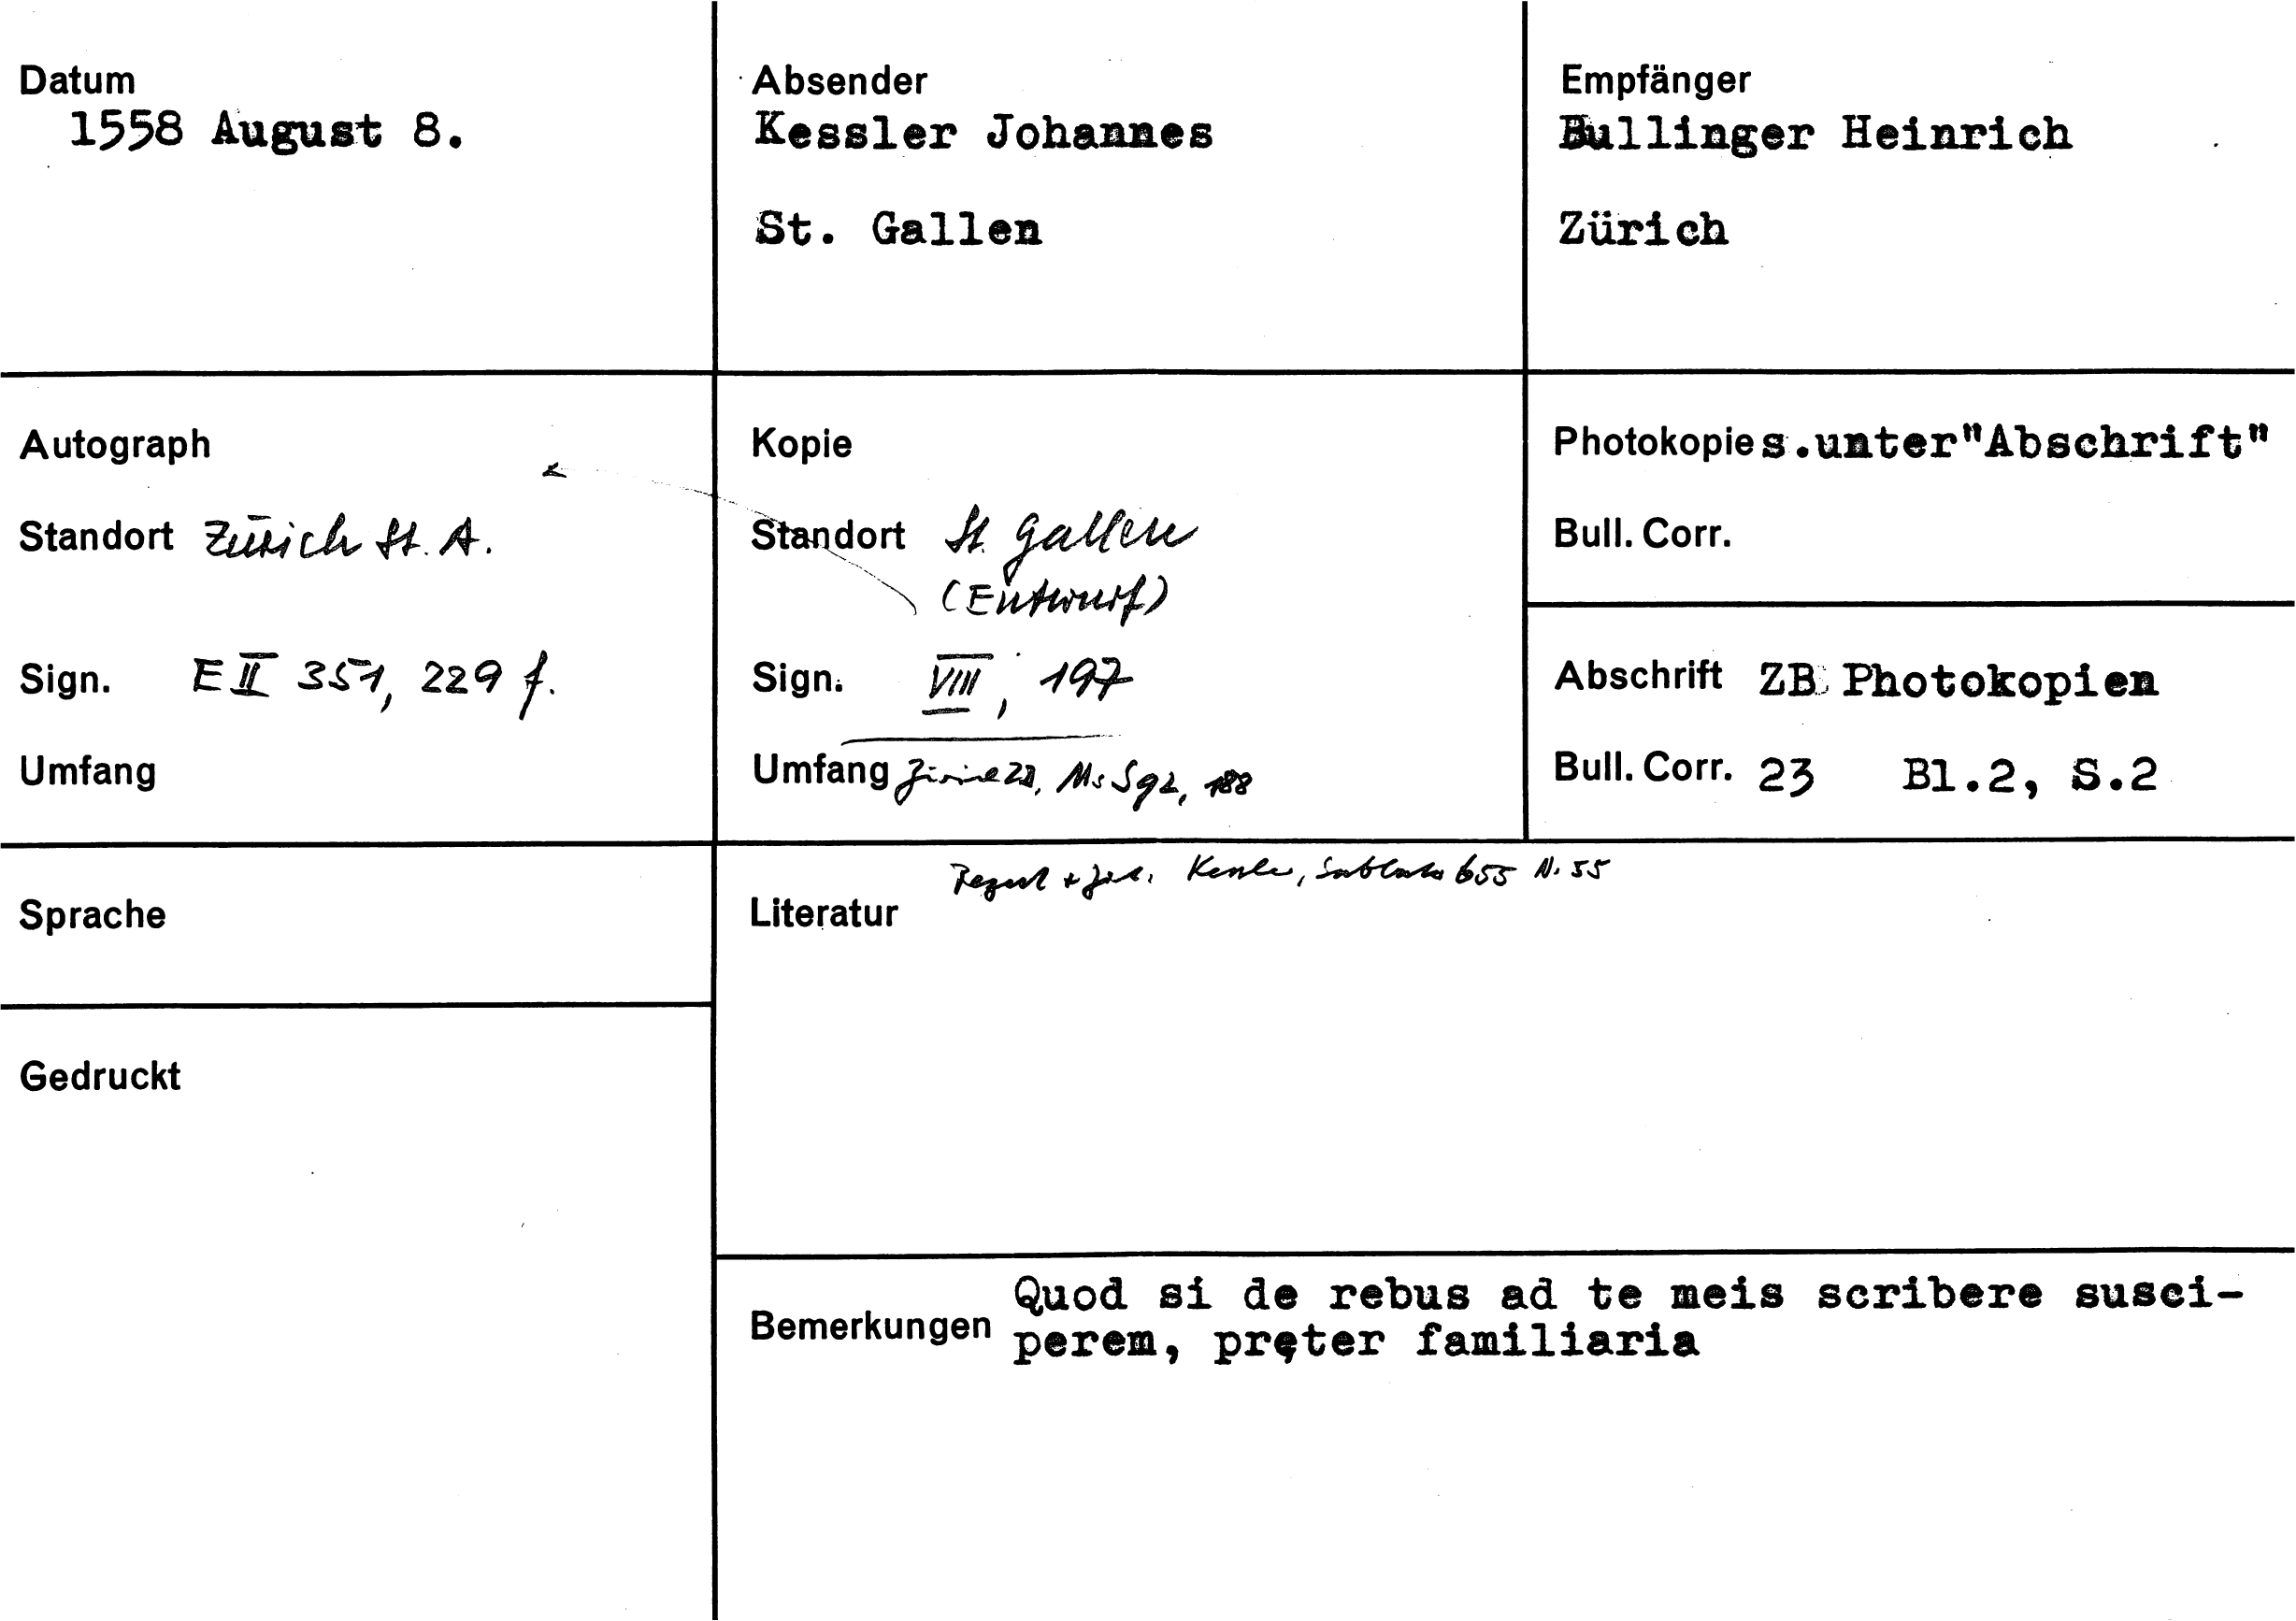 Datum
1558 August 8.
Absender
Kessler Johannes
St. Gallen
Empfänger
Bullinger Heinrich
Zürich
Autograph
Standort Zürich St. A.
Sign. E II 351, 229 f.
Umfang
Kopie
Standort St. Gallen
(Entwurf)
Sign. VIII, 197
Umfang Zürich ZB, Ms S 92, 188
Photokopie s.unter"Abschrift"
Bull. Corr.
Abschrift ZB Photokopien
Bull. Corr. 23 Bl.2, S.2
Sprache
Gedruckt
Regest + Kessler, Sabbata 655 N. 55
Literatur
Bemerkungen
Quod si de rebus ad te meis scribere susci-
perem, pręter familiaria